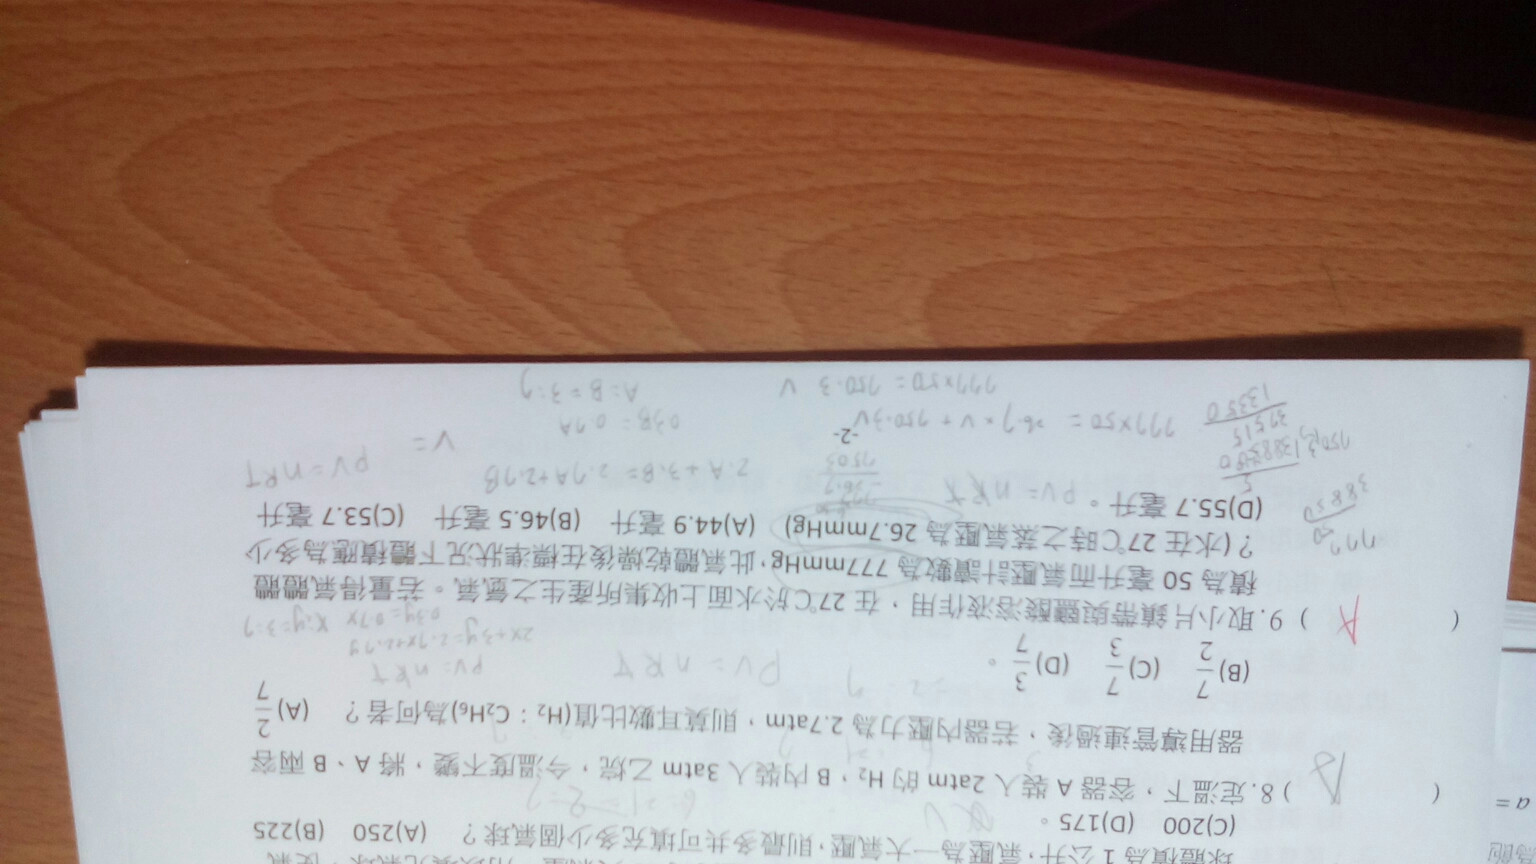 球體積為 1 公升,氣壓為一大氣壓,則最多共可填充多少個氣球? (A)250 (B)225
(C)200 (D)175。
( ) 8. 定溫下,容器 A 裝入 2atm 的 H₂、B 內裝入 3atm 乙烷,今溫度不變,將 A、B 兩容
器用導管連通後,若器內壓力為 2.7atm,則莫耳數比值(H₂:C₂H₆)為何者? (A) 2/7
(B) 7/2 (C) 7/3 (D) 3/7 。
PV = nRT
PV=nRT
2x+3y=2.7x+2.7y
0.3y=0.7x x:y=3:7
( A ) 9. 取小片鎂帶與鹽酸溶液作用,在 27℃於水面上收集所產生之氫氣。若量得氣體體
積為 50 毫升而氣壓計讀數為 777mmHg,此氣體乾燥後在標準狀況下體積應為多少
? (水在 27℃時之蒸氣壓為 26.7mmHg) (A)44.9 毫升 (B)46.5 毫升 (C)53.7 毫升
(D)55.7 毫升。
PV = nRT
2.A+3.B=2.7A+2.7B
PV=nRT
0.3B=0.7A
V =
777×50 = 26.7×V+750.3V
A:B=3:7
777×50=750.3 V
-2-
a =